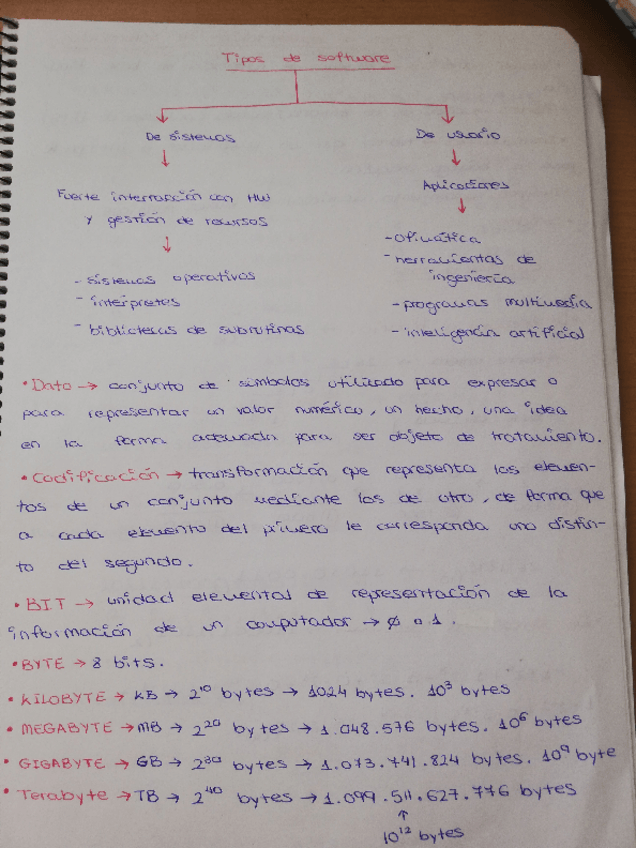 Tipos de software
De sistemas
De usuario
↓
↓
Fuerte interracción con HW
y gestión de recursos
Aplicaciones
↓
↓
- sistemas operativos
- interpretes
- bibliotecas de subrutinas
- ofimática
- herramientas de
ingeniería
- programas multimedia
- inteligencia artificial
• Dato → conjunto de símbolos utilizado para expresar o
para representar un valor numérico, un hecho, una idea
en la forma adecuada para ser objeto de tratamiento.
• Codificación → transformación que representa los elemen-
tos de un conjunto mediante los de otro, de forma que
a cada elemento del primero le corresponda uno distin-
to del segundo.
• BIT → unidad elemental de representación de la
información de un computador → ø o 1.
• BYTE → 8 bits.
• KILOBYTE → KB → 2¹⁰ bytes → 1024 bytes. 10³ bytes
• MEGABYTE → MB → 2²⁰ bytes → 1.048.576 bytes. 10⁶ bytes
• GIGABYTE → GB → 2³⁰ bytes → 1.073.741.824 bytes. 10⁹ byte
• Terabyte → TB → 2⁴⁰ bytes → 1.099.511.627.776 bytes
↑
10¹² bytes